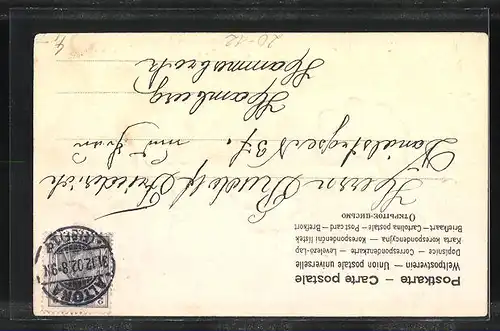 Postkarte – Carte postale
Weltpostverein – Union postale universelle
Dopisnice – Correspondenzkarte – Levelező-Lap
Karta korespondencyjna – Korespondenční lístek
Briefkaart – Cartolina postale – Post card – Brefkort
Открытое письмо
Herrn Rudolf Friederich
mit Frau
Hamburg
Hammerbrook
ALTONA
31.12.02.8-9N